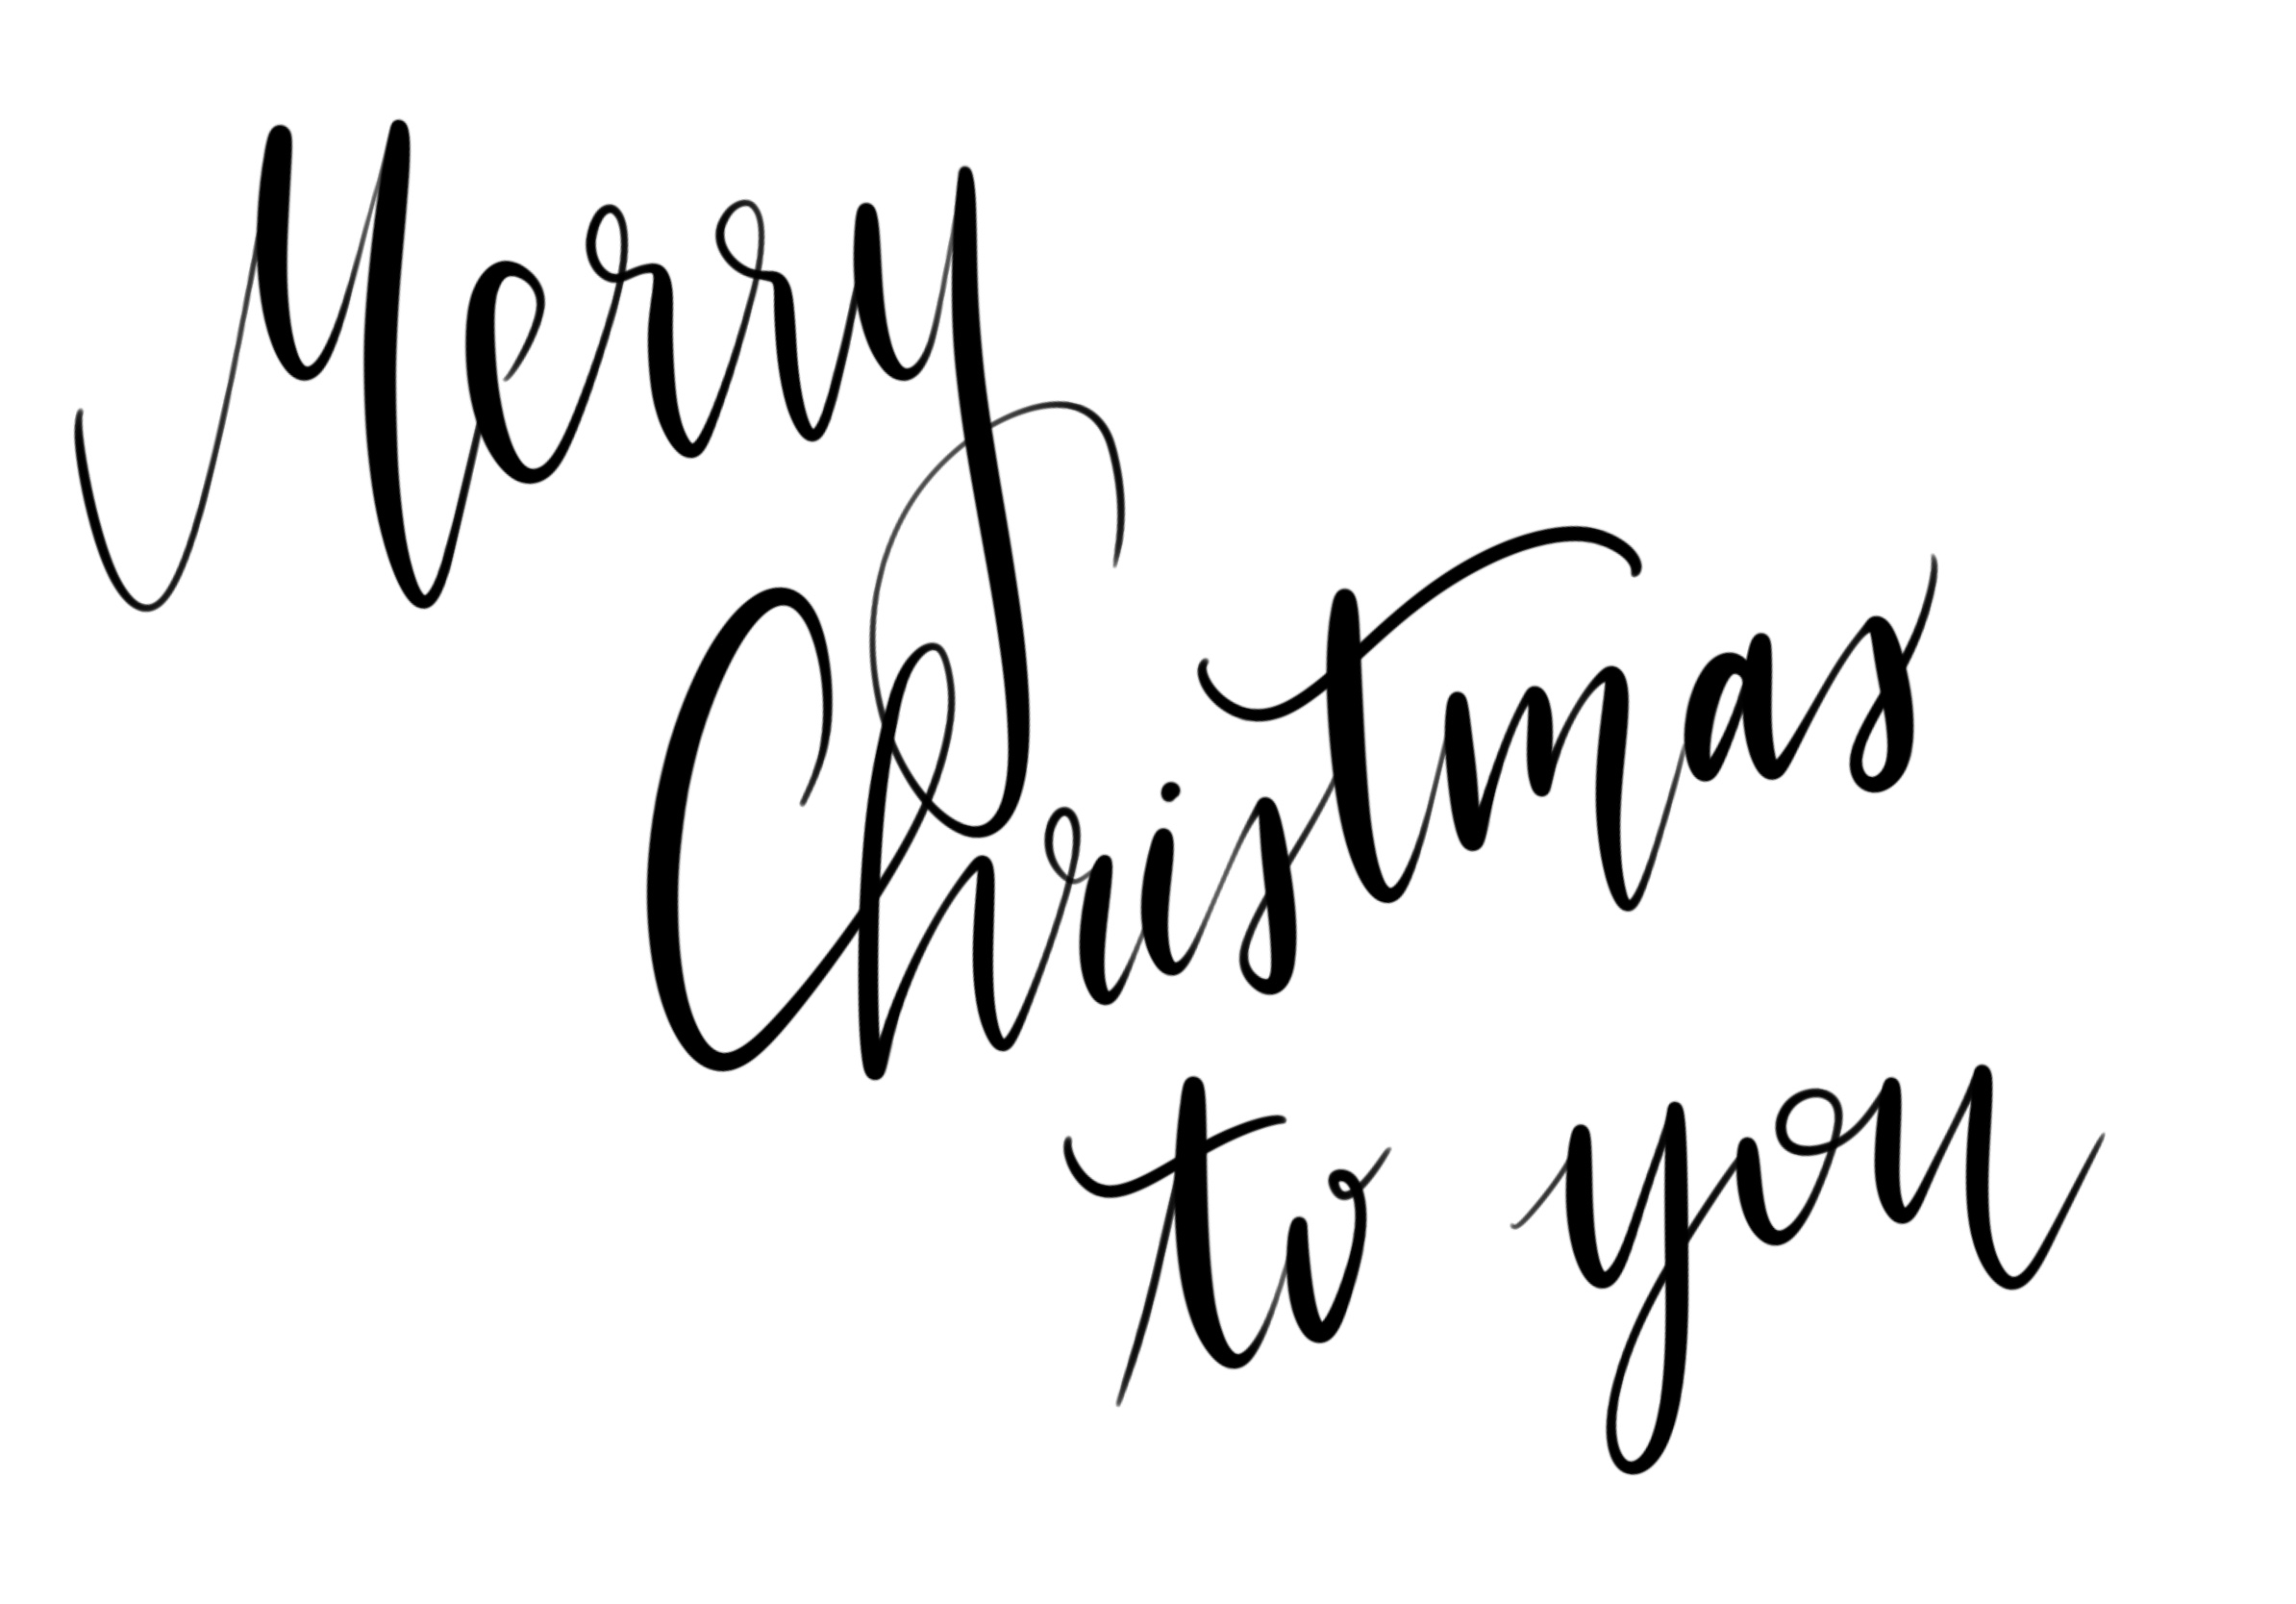 Merry
Christmas
to you